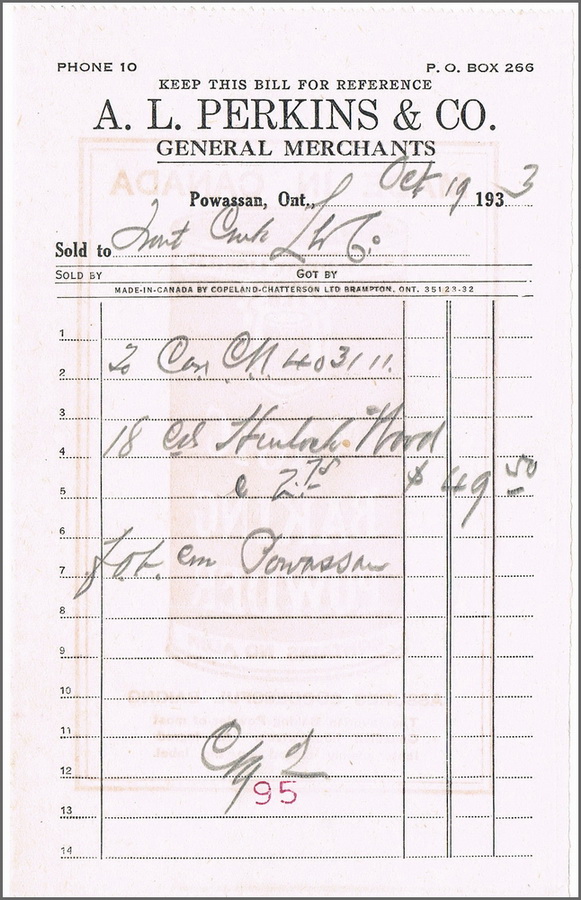 PHONE 10 P. O. BOX 266
KEEP THIS BILL FOR REFERENCE
A. L. PERKINS & CO.
GENERAL MERCHANTS
Powassan, Ont., Oct 19 1933
Sold to
SOLD BY GOT BY
MADE-IN-CANADA BY COPELAND-CHATTERSON LTD BRAMPTON, ONT. 35123-32
1
2 Car C.N. 403111
3
4 18 Cds Hemlock Wood
5 @ 2.75 $ 49 50
6
7 f.o.b. Powassan
8
9
10
11
12
95
13
14